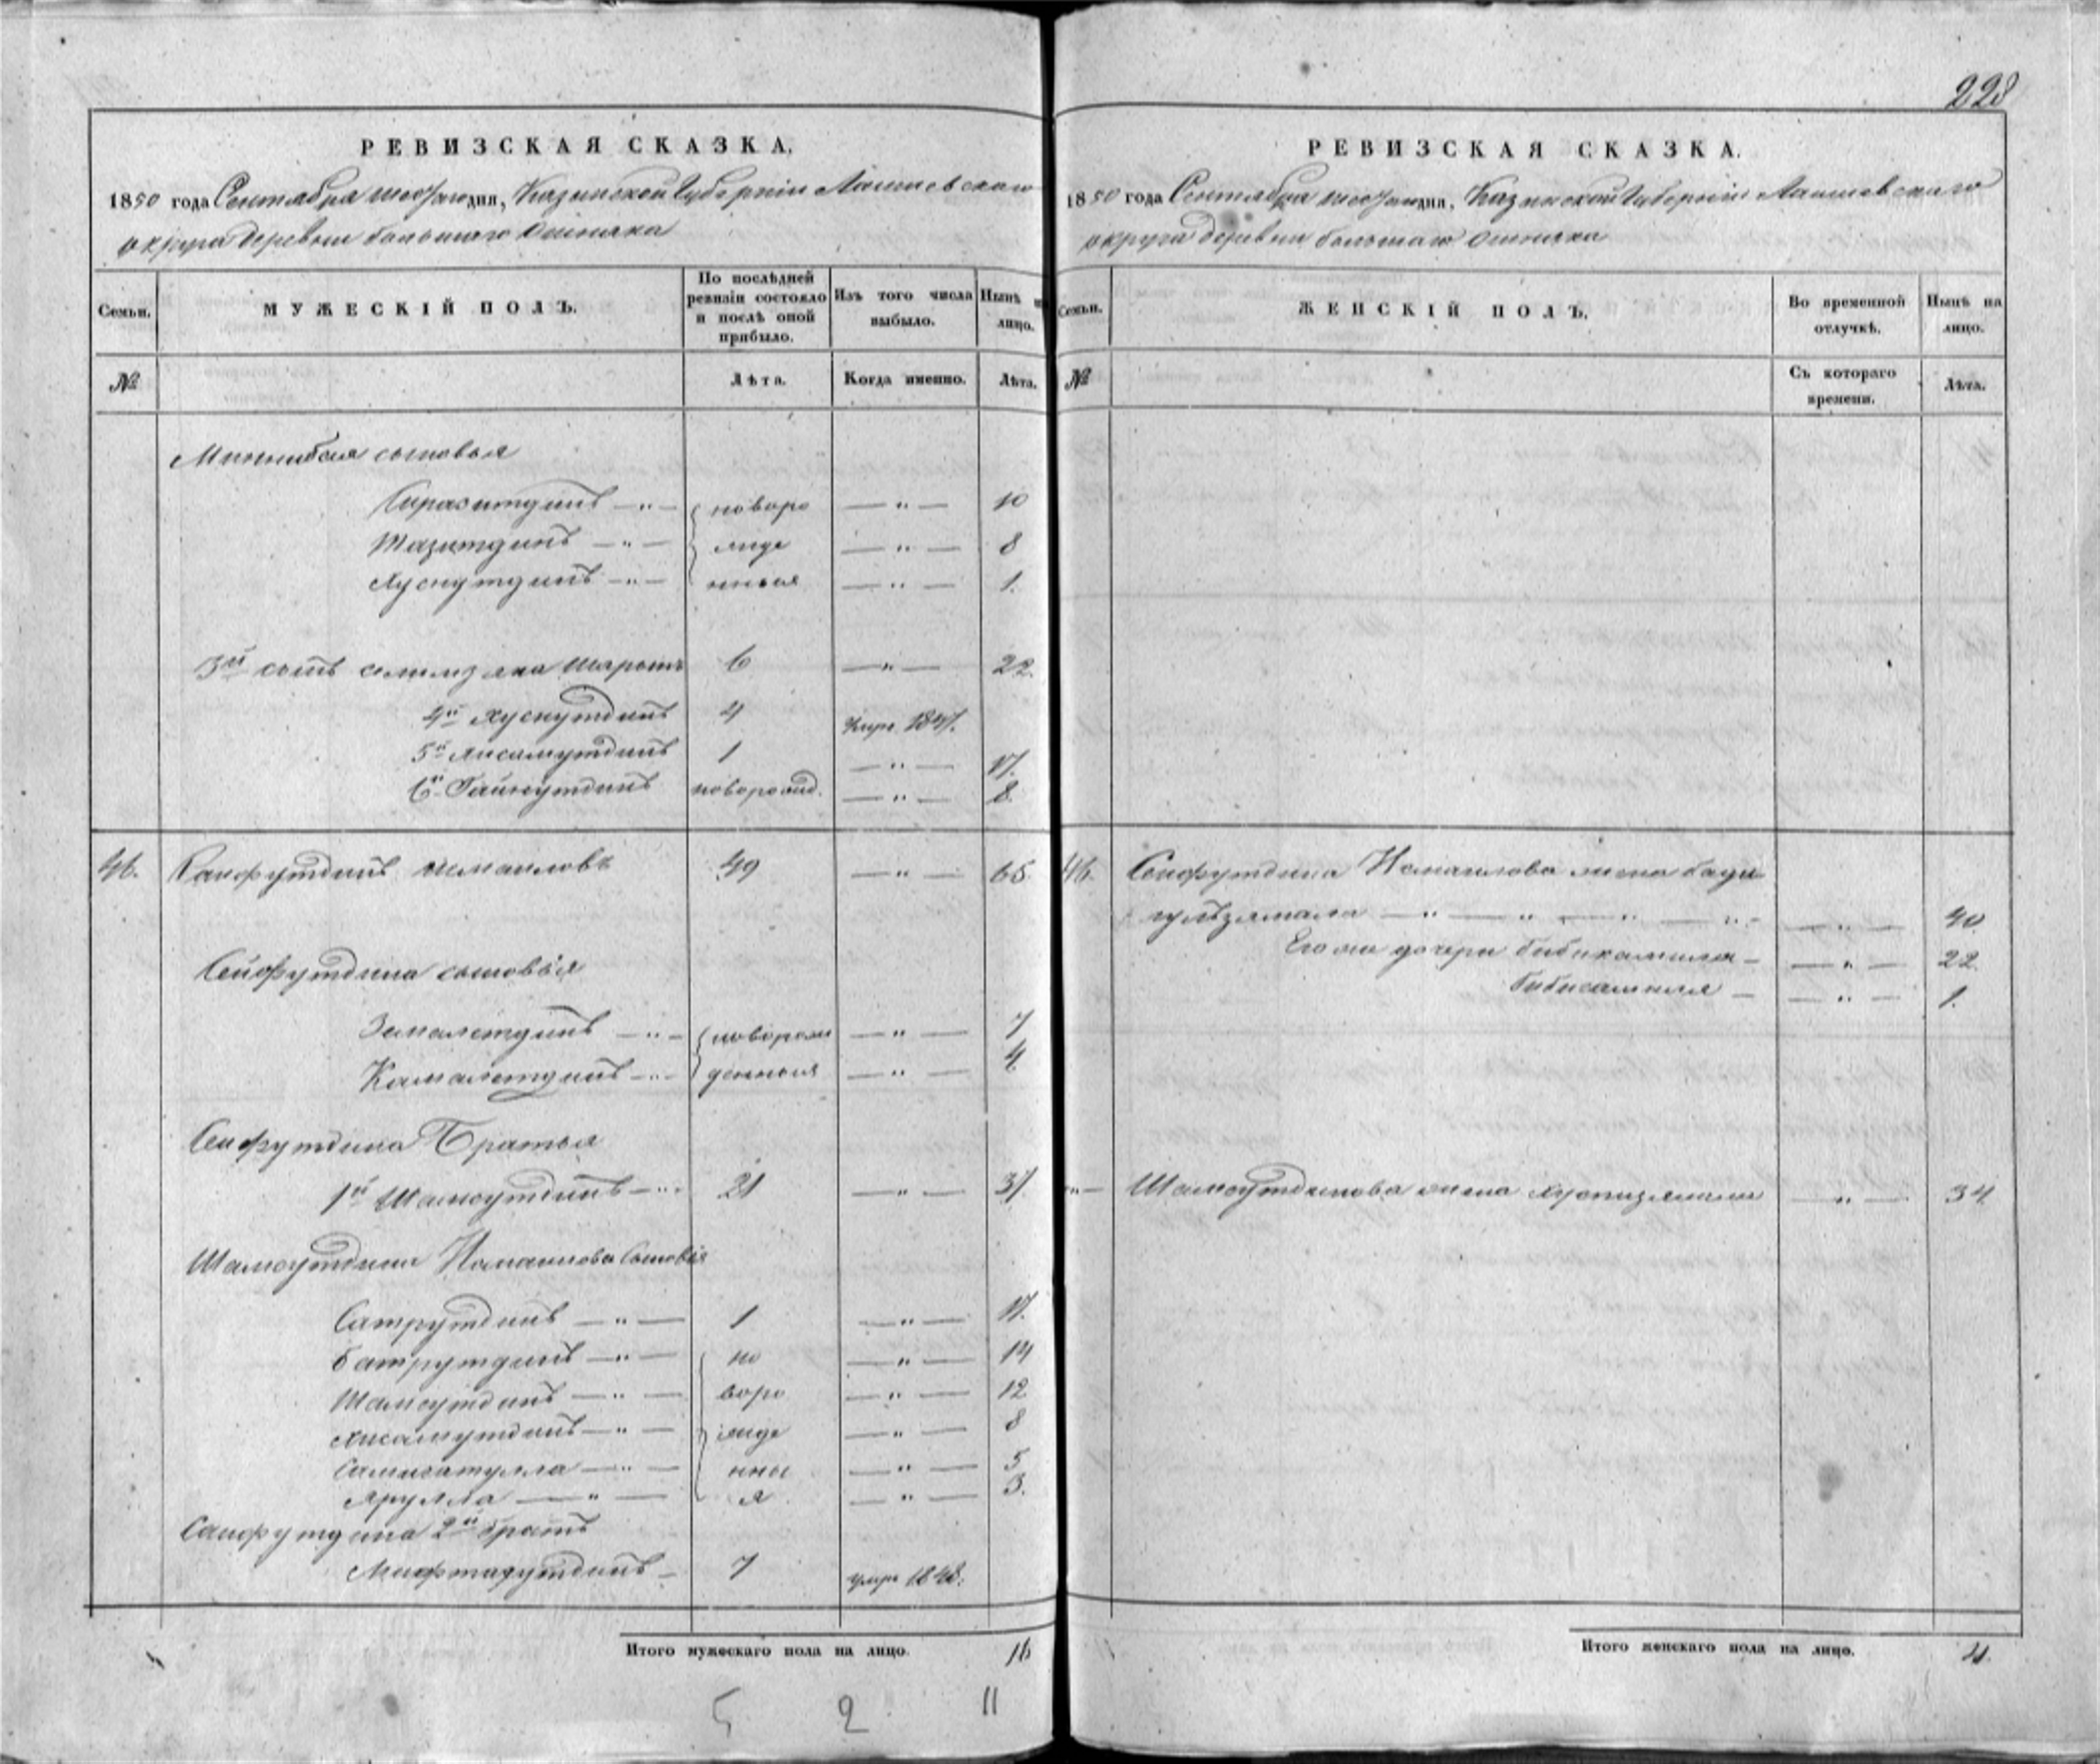 РЕВИЗСКАЯ СКАЗКА.
1850 года Сентября дня, Казанской Губернии Лаишевского
округа деревни большаго Ошняка
Семьи.
МУЖЕСКІЙ ПОЛЪ.
По послѣдней ревизіи состояло и послѣ оной прибыло.
Изъ того числа выбыло.
Нынѣ на лицо.
№
Лѣта.
Когда именно.
Лѣта.
Миннибая сыновья
Сиразитдинъ — „ — новоро — „ — 10
Тазитдинъ — „ — жде — „ — 8
Хуснутдинъ — „ — нныя — „ — 1.
3й сынъ 6 — „ — 22.
4й Хуснутдинъ 4 умре 1847.
5й Хисамутдинъ 1 — „ — 17.
6й Гайнутдинъ новорожд. — „ — 8.
46. Сайфутдинъ Исмаиловъ 49 — „ — 65
Сейфутдина сыновья
Замалетдинъ — „ — новорож — „ — 7
Камалетдинъ — „ — денныя — „ — 4
Сейфутдина Братья
1й Шамсутдинъ — „ 21 — „ — 37
Шамсутдина Исмаилова Сыновья
Сатрутдинъ — „ — 1 — „ — 17.
батрутдинъ — „ — но — „ — 14
Шамсутдинъ — „ — воро — „ — 12
Хисамутдинъ — „ — жде — „ — 8
Самигатулла — „ — нны — „ — 5
Ярулла — „ — я — „ — 3.
Сайфутдина 2й братъ
Мифтахутдинъ — 7 умре 1848.
Итого мужескаго пола на лицо. 16
5 2 11
228
РЕВИЗСКАЯ СКАЗКА.
1850 года Сентября дня, Казанской Губерніи Лаишевскаго
округа деревни большаго Ошняка
Семьи.
ЖЕНСКІЙ ПОЛЪ.
Во временной отлучкѣ.
Нынѣ на лицо.
№
Съ котораго времени.
Лѣта.
46. Сейфутдина Исмаилова жена бади
гулзямала — „ — „ — „ — „ — — „ — 40
Его же дочери бибикамиля — — „ — 22.
бибисамиля — — „ — 1.
„ — Шамсутдинова жена — „ — 34
Итого женскаго пола на лицо. 4.